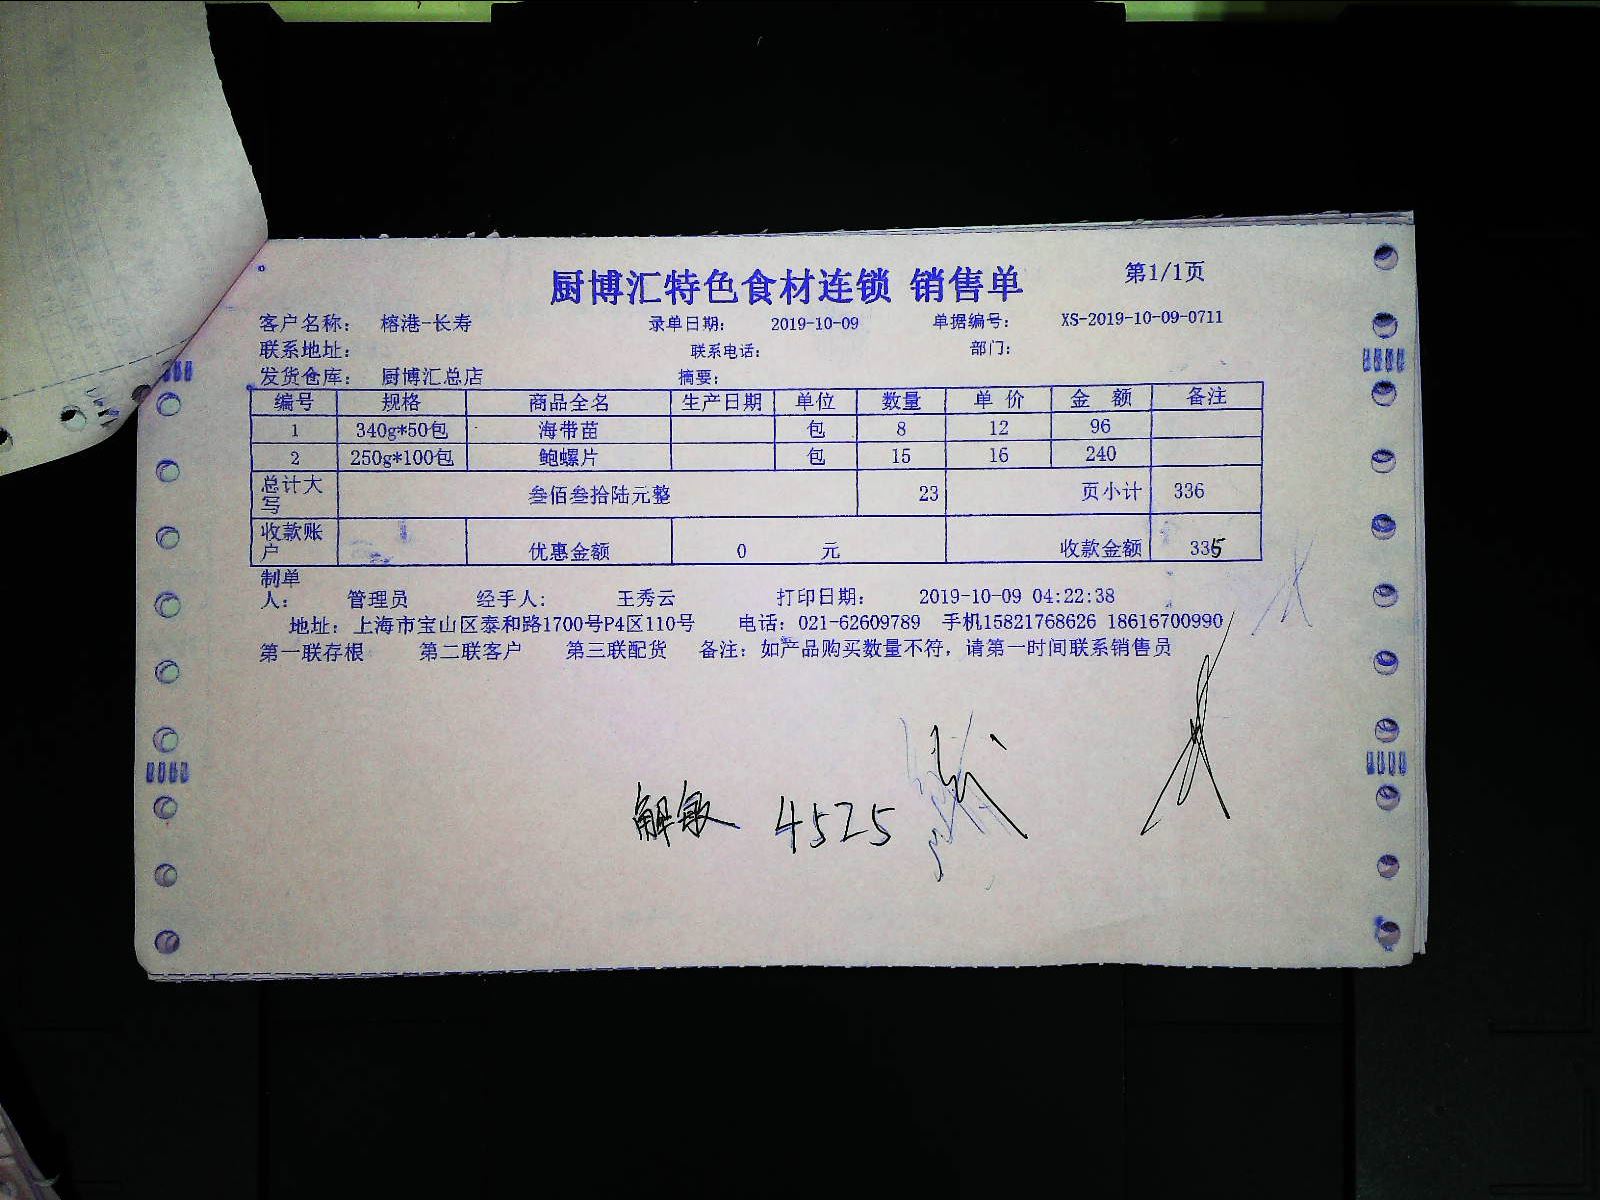 厨博汇特色食材连锁 销售单 第1/1页
客户名称： 榕港-长寿 录单日期： 2019-10-09 单据编号： XS-2019-10-09-0711
联系地址： 联系电话： 部门：
发货仓库： 厨博汇总店 摘要：
编号 规格 商品全名 生产日期 单位 数量 单 价 金 额 备注
1 340g*50包 海带苗 包 8 12 96
2 250g*100包 鲍螺片 包 15 16 240
总计大写 叁佰叁拾陆元整 23 页小计 336
收款账户 优惠金额 0 元 收款金额 335
制单人： 管理员 经手人： 王秀云 打印日期： 2019-10-09 04:22:38
地址：上海市宝山区泰和路1700号P4区110号 电话：021-62609789 手机15821768626 18616700990
第一联存根 第二联客户 第三联配货 备注：如产品购买数量不符，请第一时间联系销售员
解敏 4525